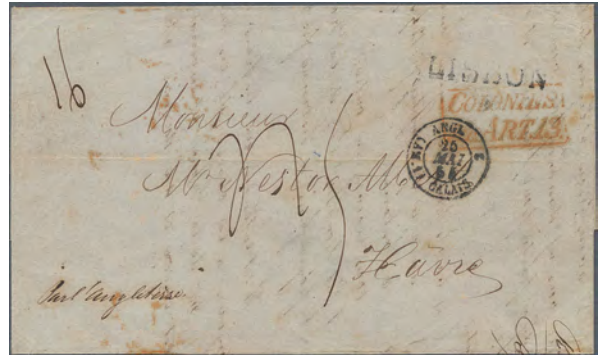 16
LISBON
COLONIES &c
ART.13.
ANGL. 2
25
MAI
CALAIS
Monsieur
Mr Nestor
Hâvre
Par l'Angleterre